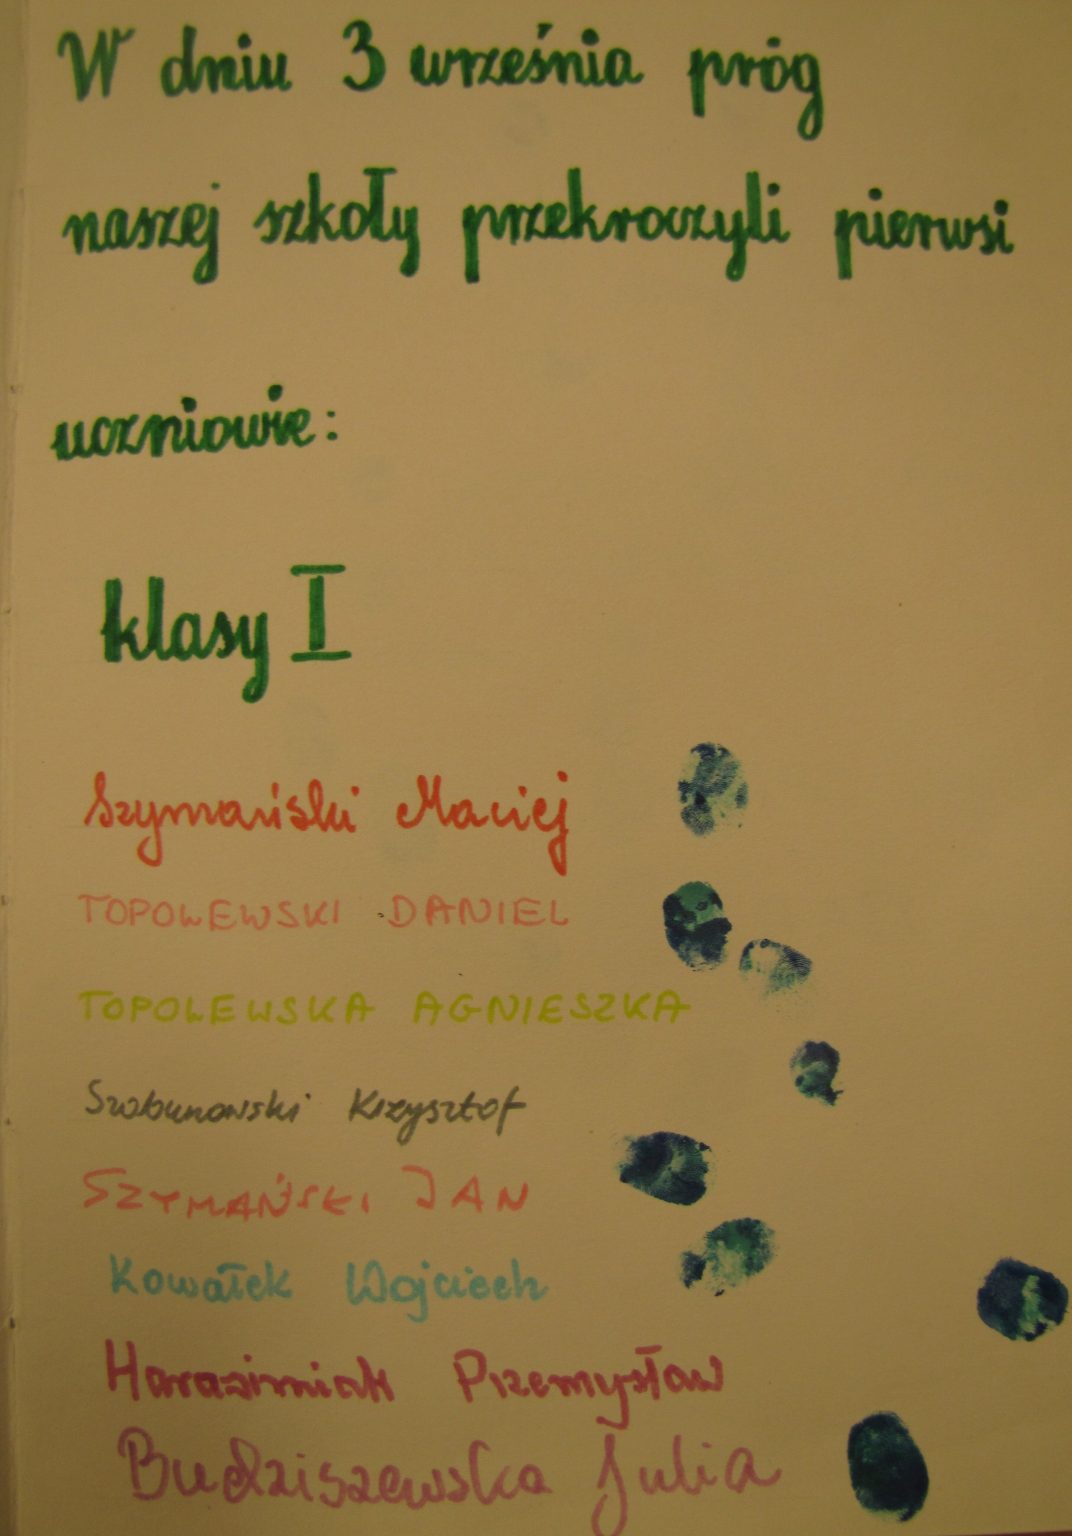 W dniu 3 września próg
naszej szkoły przekroczyli pierwsi
uczniowie:
klasy I
Szymański Maciej
TOPOLEWSKI DANIEL
TOPOLEWSKA AGNIESZKA
Krzysztof
SZYMAŃSKI JAN
Kowałek Wojciech
Harasimiak Przemysław
Budziszewska Julia